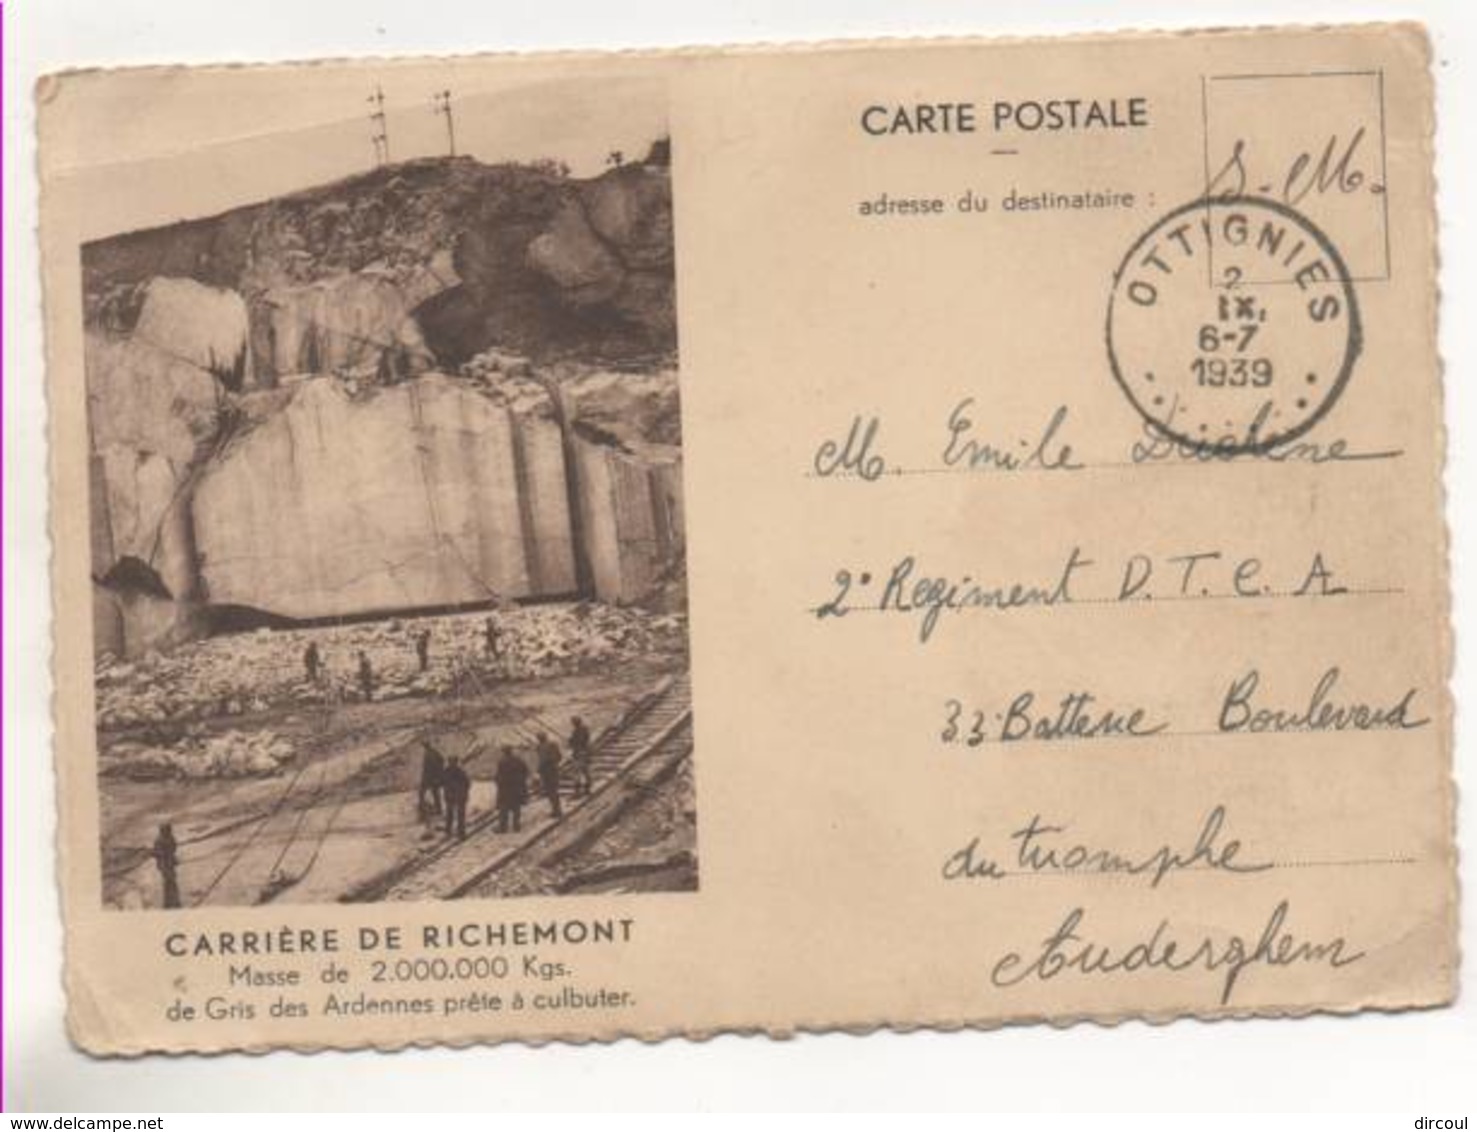 CARTE POSTALE
adresse du destinataire :
S. M.
OTTIGNIES
2
IX.
6-7
1939
M. Emile
2e Regiment D. T. C. A
33 Batterie Boulevard
du triomphe
Auderghem
CARRIÈRE DE RICHEMONT
Masse de 2.000.000 Kgs.
de Gris des Ardennes prête à culbuter.
www.delcampe.net
dircoul